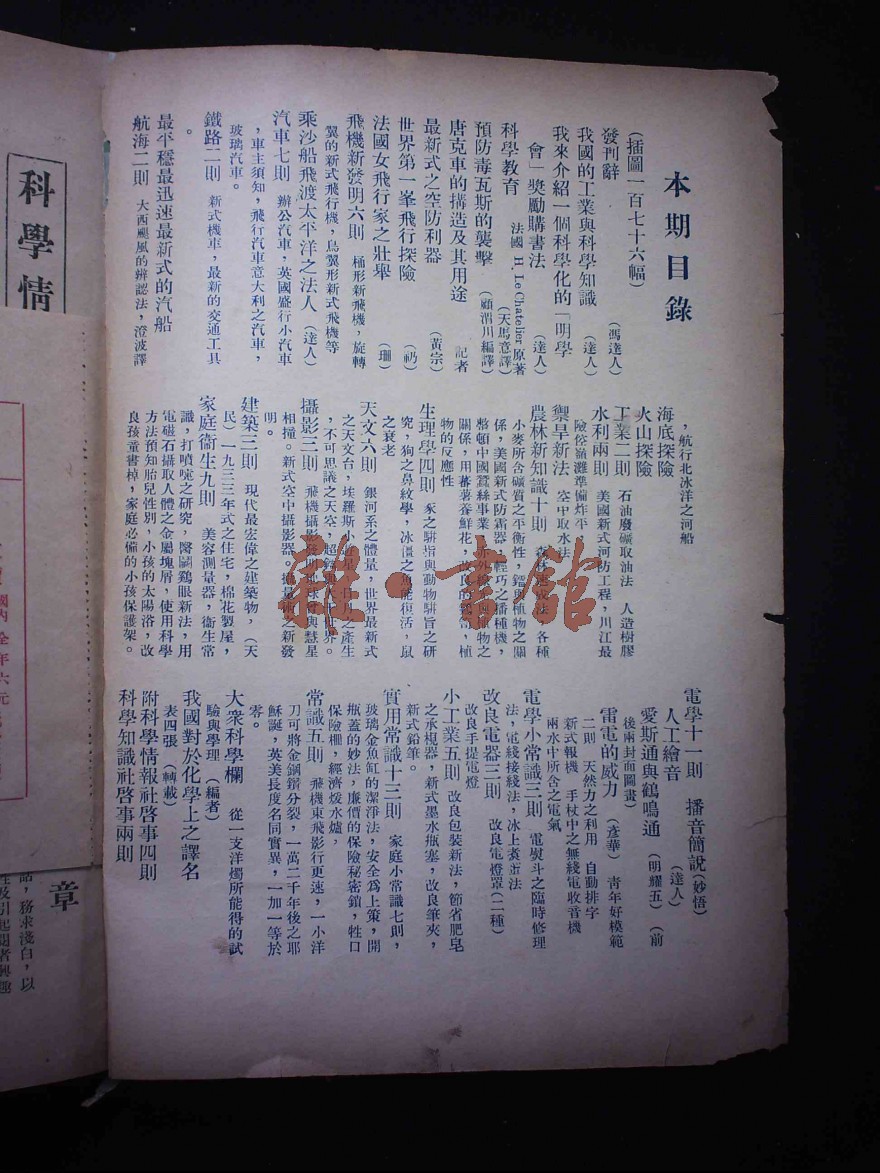 本期目錄
(插圖一百七十六幅)
發刊辭 (馮達人)
我國的工業與科學知識 (達人)
我來介紹一個科學化的「明學
會」獎勵購書法 (達人)
科學教育 法國 H. Le Chatelier 原著 (天馬意譯)
預防毒瓦斯的襲擊 (顧渭川編譯)
唐克車的搆造及其用途 記者
最新式之空防利器 (黃宗)
世界第一峯飛行探險 (礽)
法國女飛行家之壯舉 (珊)
飛機新發明六則 桶形新飛機,旋轉
翼的新式飛行機,鳥翼形新式飛機等
乘沙船飛渡太平洋之法人 (達人)
汽車七則 辦公汽車,英國盛行小汽車
,車主須知,飛行汽車意大利之汽車,
玻璃汽車。
鐵路二則 新式機車,最新的交通工具
最平穩最迅速最新式的汽船
航海二則 大西颶風的辨認法,澄波譯
,航行北冰洋之河船
海底探險
火山探險
工業二則 石油廢礦取油法 人造樹膠
水利兩則 美國新式河防工程,川江最
險俗嶺灘準備炸平
禦旱新法 空中取水法
農林新知識十則 森林速成法,各種
小麥所含礦質之平衡性,鐳與植物之關
係,美國新式防霜器,輕巧之播種機,
整頓中國蠶絲事業
關係,用蕃薯養鮮花,改良的 植
物的反應性
生理學四則 豕之駢指與動物駢旨之研
究,狗之鼻紋學,冰凍之魚能復活,鼠
之衰老
天文六則 銀河系之體量,世界最新式
之天文台,埃羅斯小 星,日月之產生
,不可思議之天空,超 界。
攝影三則 飛機攝影發明地球曾與慧星
相撞。新式空中攝影器。 之新發
明。
建築三則 現代最宏偉之建築物,(天
民)一九三三年式之住宅,棉花製屋,
家庭衞生九則 美容測量器,衞生常
識,打噴嚏之研究,醫鷄眼新法,用
電磁石攝取人體之金屬塊屑,使用科學
方法預知胎兒性別,小孩的太陽浴,改
良孩童書棹,家庭必備的小孩保護架。
電學十一則 播音簡說(妙悟)
人工繪音 (達人)
愛斯通與鶴鳴通 (明耀五) (前
後兩封面圖畫)
雷電的威力 (彥華) 青年好模範
二則 天然力之利用 自動排字
新式報機 手杖中之無綫電收音機
兩水中所含之電氣
電學小常識三則 電熨斗之臨時修理
法,電綫接綫法,冰上 法
改良電器三則 改良電燈罩(二種)
改良手提電燈
小工業五則 改良包裝新法,節省肥皂
之承複器,新式墨水瓶塞,改良筆夾,
新式鉛筆。
實用常識十三則 家庭小常識七則,
玻璃金魚缸的潔淨法,安全爲上策,開
瓶蓋的妙法,廉價的保險秘密鎖,牲口
保險柵,經濟煖水爐,
常識五則 飛機東飛影行更速,一小洋
刀可將金鋼鑽分裂,一萬二千年後之耶
穌誕,英美長度名同實異,一加一等於
零。
大衆科學欄 從一支洋燭所能得的試
驗與學理 (編者)
我國對於化學上之譯名
表四張 (轉載)
附科學情報社啓事四則
科學知識社啓事兩則
科學情
國內全年六元
章
,務求淺白,以
及引起閱者興趣
雜·書館